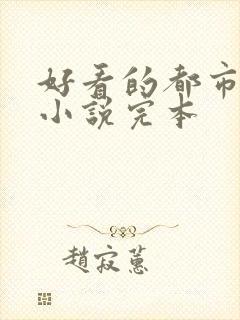 好看的都市
小说完本
趙寂蕙